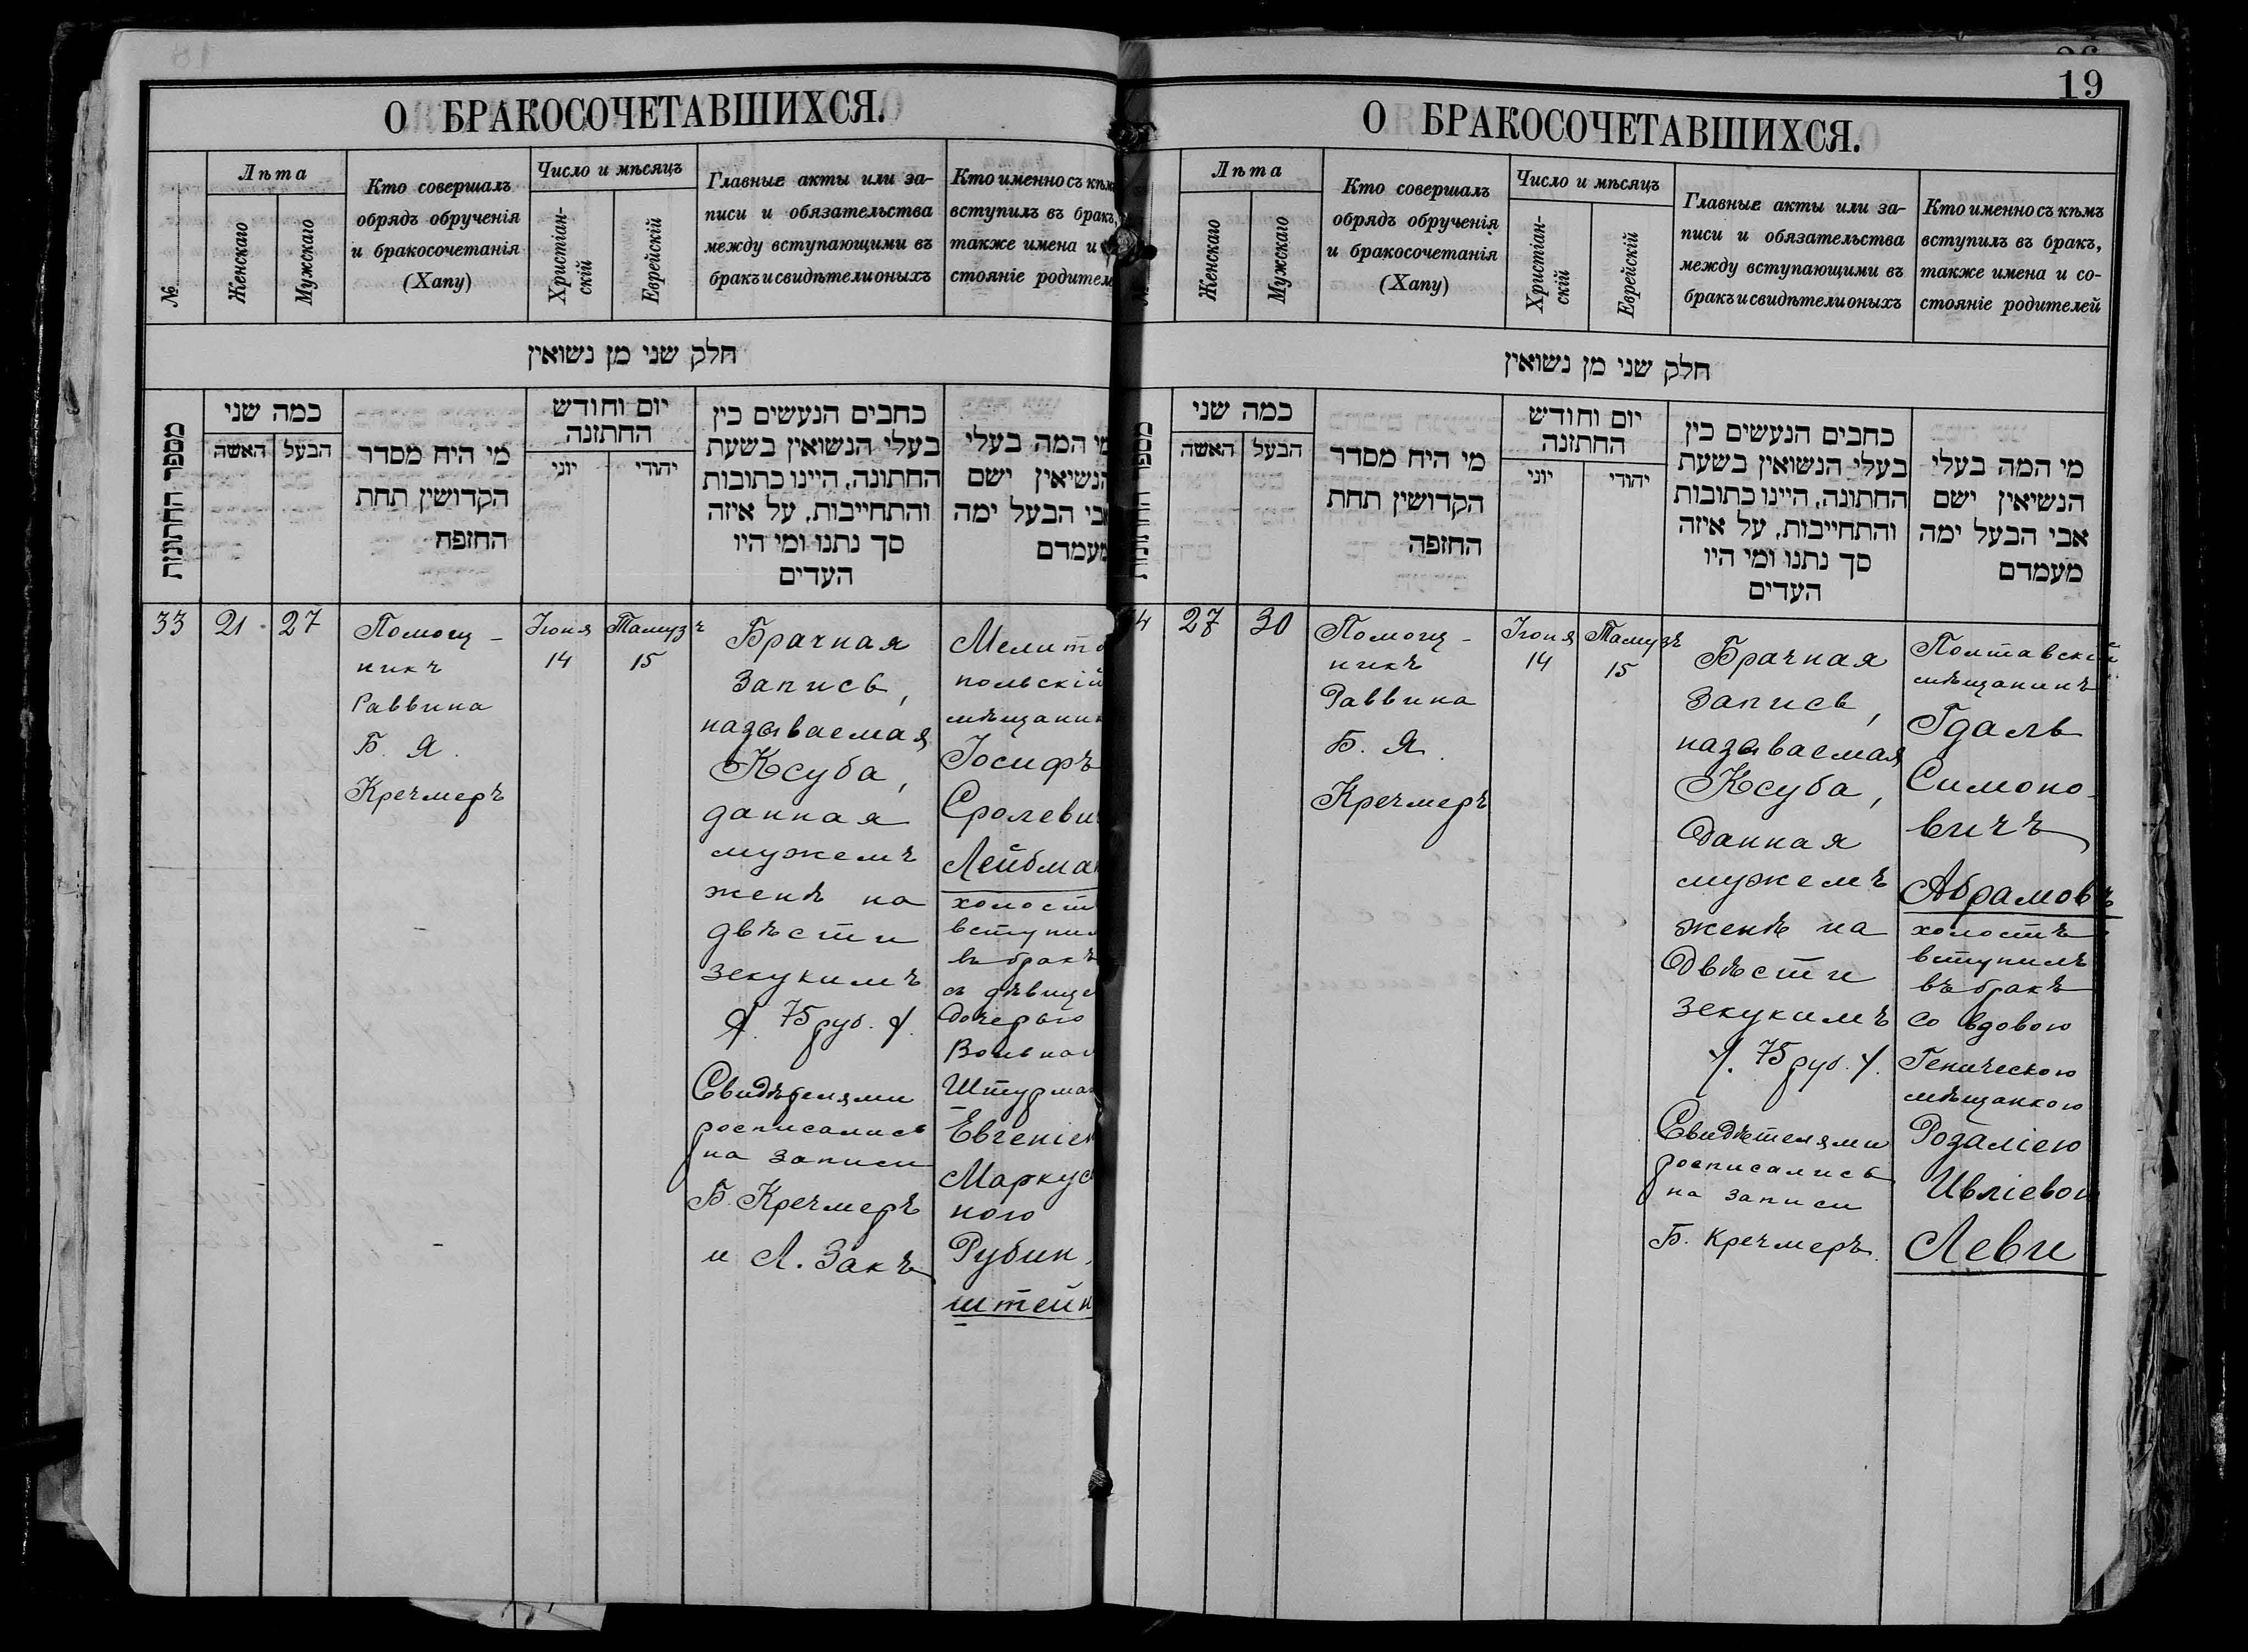 О БРАКОСОЧЕТАВШИХСЯ.
№
Лѣта
Женскаго
Мужскаго
Кто совершалъ
обрядъ обрученія
и бракосочетанія
(Хапу)
Число и мѣсяцъ
Христіан-
скій
Еврейскій
Главные акты или за-
писи и обязательства
между вступающими въ
бракъ и свидѣтели оныхъ
Кто именно съ кѣм
вступилъ въ бракъ,
также имена и
стояніе родителе
חלק שני מן נשואין
מספר החתונות
כמה שני
האשה
הבעל
מי היח מסדר
הקדושין תחת
החזפח
יום וחודש
החתזנה
יוני
יהודי
כחבים הנעשים כין
בעלי הנשואין בשעת
החתונה, היינו כתובות
והתחייבות, על איזה
סך נתנו ומי היו
העדים
מי המה בעלי
הנשיאין ישם
אבי הבעל ימה
מעמדם
33
21
27
Помощ-
никъ
Раввина
Б. Я.
Кречмеръ
Іюня
14
Тамузъ
15
Брачная
запись,
называемая
Ксуба,
данная
мужемъ
женѣ на
двѣсти
зекукимъ
75 руб.
Свидѣтелями
росписались
на записи
Б. Кречмеръ
и Л. Закъ
Мелито
польскій
мѣщанин
Іосифъ
Сролеви
Лейбма
холост
вступил
въ бракъ
съ дѣвице
дочерью
Вольнаг
Штурма
Евгеніе
Маркус
ною
Рубин
штейн
19
О БРАКОСОЧЕТАВШИХСЯ.
Лѣта
Женскаго
Мужскаго
Кто совершалъ
обрядъ обрученія
и бракосочетанія
(Хапу)
Число и мѣсяцъ
Христіан-
скій
Еврейскій
Главные акты или за-
писи и обязательства
между вступающими въ
бракъ и свидѣтели оныхъ
Кто именно съ кѣмъ
вступилъ въ бракъ,
также имена и со-
стояніе родителей
חלק שני מן נשואין
כמה שני
האשה
הבעל
מי היח מסדר
הקדושין תחת
החזפה
יום וחודש
החתזנה
יוני
יהודי
כחבים הנעשים כין
בעלי הנשואין בשעת
החתונה, היינו כתובות
והתחייבות, על איזה
סך נתנו ומי היו
העדים
מי המה בעלי
הנשיאין ישם
אבי הבעל ימה
מעמדם
4
27
30
Помощ-
никъ
Раввина
Б. Я.
Кречмеръ
Іюня
14
Тамузъ
15
Брачная
запись,
называемая
Ксуба,
данная
мужемъ
женѣ на
двѣсти
зекукимъ
75 руб.
Свидѣтелями
росписались
на записи
Б. Кречмеръ.
Полтавскій
мѣщанинъ
Гдаль
Симоно-
вичъ
Абрамовъ
холостъ
вступилъ
въ бракъ
со вдовою
Геническою
мѣщанкою
Розаліею
Ивліевой
Леви